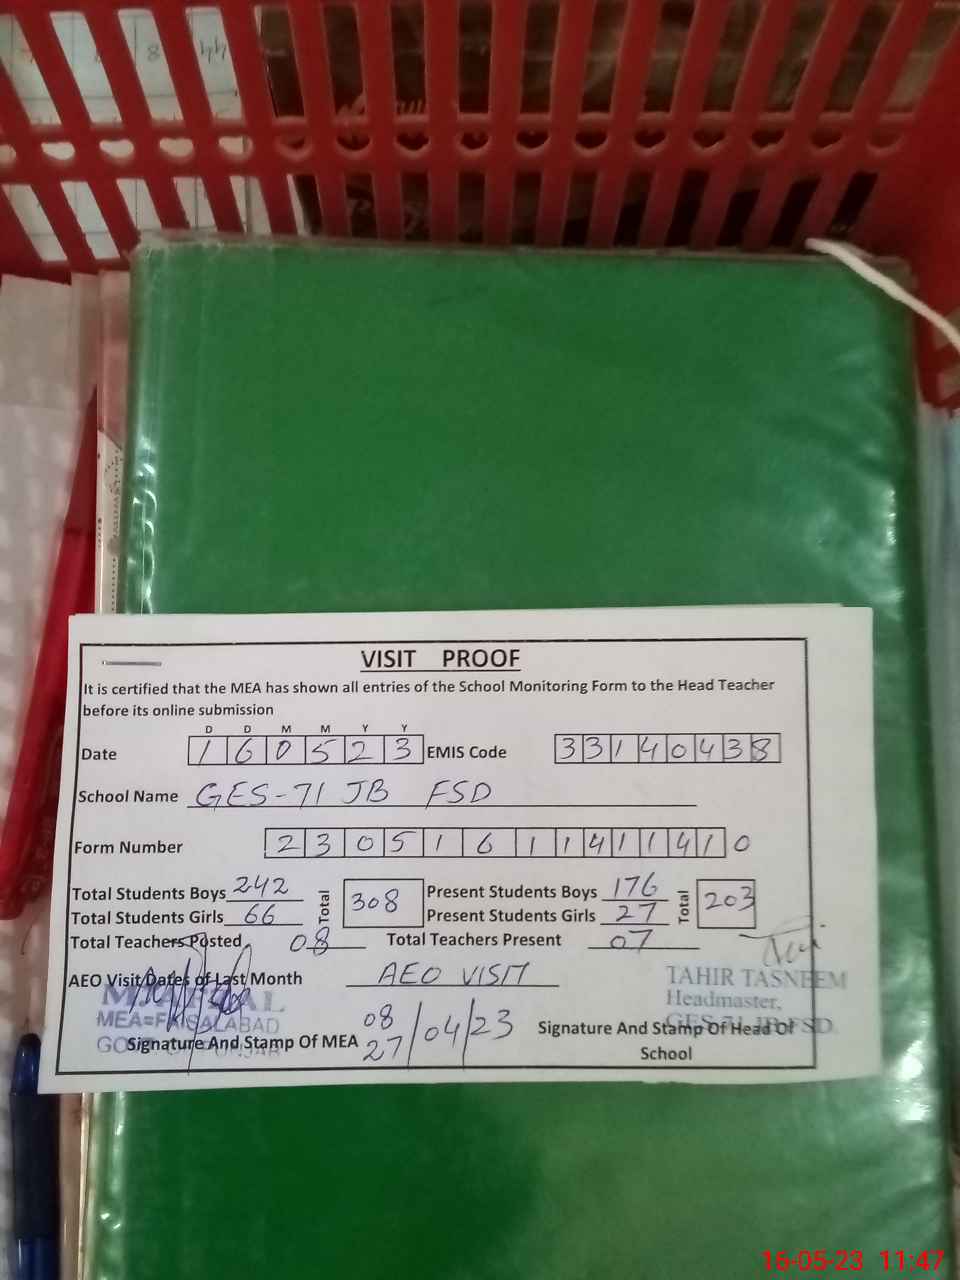 VISIT PROOF
It is certified that the MEA has shown all entries of the School Monitoring Form to the Head Teacher
before its online submission
D D M M Y Y
Date 1 6 0 5 2 3 EMIS Code 3 3 1 4 0 4 3 8
School Name GES-71 JB FSD
Form Number 2 3 0 5 1 6 1 1 4 1 1 4 1 0
Total Students Boys 242 Total 308 Present Students Boys 176 Total 203
Total Students Girls 66 Present Students Girls 27
Total Teachers Posted 08 Total Teachers Present 07
AEO Visit Dates of Last Month AEO VISIT
TAHIR TASNEEM
Headmaster,
GES-71 JB FSD.
MEA=FAISALABAD
08
27 /04/23
Signature And Stamp Of MEA
Signature And Stamp Of Head Of
School
16-05-23 11:47